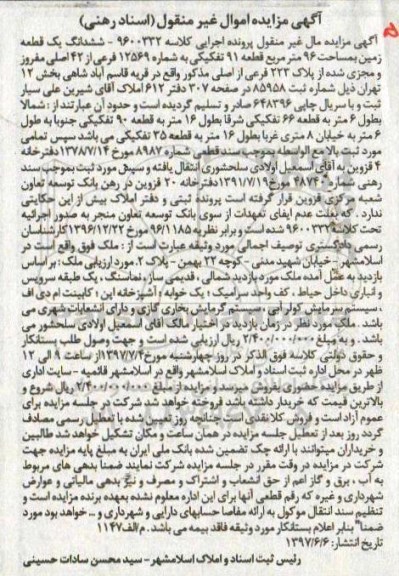 آگهی مزایده اموال غیر منقول (اسناد رهنی)
آگهی مزایده مال غیر منقول پرونده اجرایی کلاسه ۹۶۰۰۳۳۲ - ششدانگ یک قطعه
زمین بمساحت ۹۶ متر مربع قطعه ۹۱ تفکیکی به شماره ۱۲۵۶۹ فرعی از ۴۲ اصلی مفروز
و مجزی شده از پلاک ۲۲۳ فرعی از اصلی مذکور واقع در قریه قاسم آباد شاهی بخش ۱۲
تهران ذیل شماره ثبت ۸۵۹۵۸ در صفحه ۳۰۷ دفتر ۶۱۲ املاک آقای شیرین علی سیار
ثبت و با سریال چاپی ۶۴۸۳۹۶ صادر و تسلیم گردیده است و حدود آن عبارتند از: شمالا
بطول ۶ متر به قطعه ۶۶ تفکیکی شرقا بطول ۱۶ متر به قطعه ۹۰ تفکیکی جنوبا به طول
۶ متر به خیابان ۸ متری غربا بطول ۱۶ متر به قطعه ۳۵ تفکیکی می باشد سپس تمامی
مورد ثبت بالا مع الواسطه بموجب سند قطعی شماره ۸۹۸۷ مورخ ۱۳۷۸/۷/۱۴ دفترخانه
۴ قزوین به آقای اسمعیل اولادی سلحشوری انتقال یافته و سپس مورد ثبت بموجب سند
رهنی شماره ۴۸۷۴۰ مورخ ۱۳۹۱/۷/۱۹ دفترخانه ۲۰ قزوین در رهن بانک توسعه تعاون
شعبه مرکزی قزوین قرار گرفته است پرونده ثبتی و دفتر املاک بیش از این حکایتی
ندارد. که بعلت عدم ایفای تعهدات از سوی بانک توسعه تعاون منجر به صدور اجرائیه
تحت کلاسه ۹۶۰۰۳۳۲ شده است و برابر نظریه ۹۶/۱۱۸۵ مورخ ۱۳۹۶/۱۲/۲۲ کارشناسان
رسمی دادگستری توصیف اجمالی مورد وثیقه عبارت است از: ملک فوق واقع است در
اسلامشهر - خیابان شهید مدنی - کوچه ۲۲ بهمن - پلاک ۲. مورد ارزیابی ملک: بر اساس
بازدید به عمل آمده ملک مورد بازدید شمالی، قدیمی ساز، نماسنگ، یک طبقه سرویس
و انباری داخل حیاط، کف واحد سرامیک؛ یک خوابه؛ آشپزخانه اپن؛ کابینت ام دی اف
، سیستم سرمایش کولر آبی، سیستم گرمایش بخاری گازی و دارای انشعابات شهری می
باشد. ملک مورد نظر در زمان بازدید در اختیار مالک آقای اسمعیل اولادی سلحشور می
باشد. و به مبلغ ۲/۴۰۰/۰۰۰/۰۰۰ ریال ارزیابی شده است و جهت وصول طلب بستانکار
و حقوق دولتی کلاسه فوق الذکر در روز چهارشنبه مورخ ۱۳۹۷/۷/۴ از ساعت ۹ الی ۱۲
ظهر در محل اداره ثبت اسناد و املاک اسلامشهر واقع در اسلامشهر قائمیه - سایت اداری
از طریق مزایده حضوری بفروش میرسد و مزایده از مبلغ ۲/۴۰۰/۰۰۰/۰۰۰ ریال شروع و
بالاترین قیمت که خریدار داشته باشد فروخته خواهد شد شرکت در جلسه مزایده برای
عموم آزاد است و فروش کلا نقدی است چنانچه روز تعیین شده با تعطیل رسمی مصادف
گردد روز بعد از تعطیل جلسه مزایده در همان ساعت و مکان تشکیل خواهد شد طالبین
و خریداران میتوانند با ارائه چک تضمین شده بانک ملی ایران به مبلغ پایه مزایده جهت
شرکت در مزایده در وقت مقرر در جلسه مزایده شرکت نمایند ضمنا بدهی های مربوط
به آب، برق و گاز اعم از حق انشعاب و اشتراک و مصرف و نیز بدهی مالیاتی و عوارض
شهرداری و غیره که رقم قطعی آنها برای این اداره معلوم نشده بعهده برنده مزایده است و
تنظیم سند انتقال موکول به ارائه مفاصا حسابهای دارایی و شهرداری و ... خواهد بود مورد
ضمنا" بنابر اعلام بستانکار مورد وثیقه فاقد بیمه می باشد. م/الف ۱۱۴۷
تاریخ انتشار: ۱۳۹۷/۶/۶
رئیس ثبت اسناد و املاک اسلامشهر - سید محسن سادات حسینی